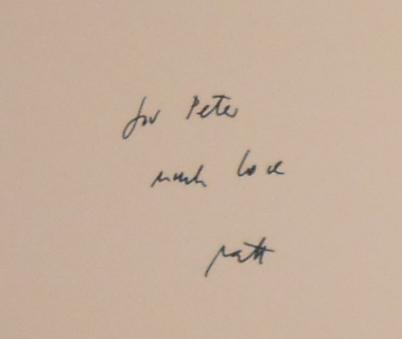 for Peter
much love
patti